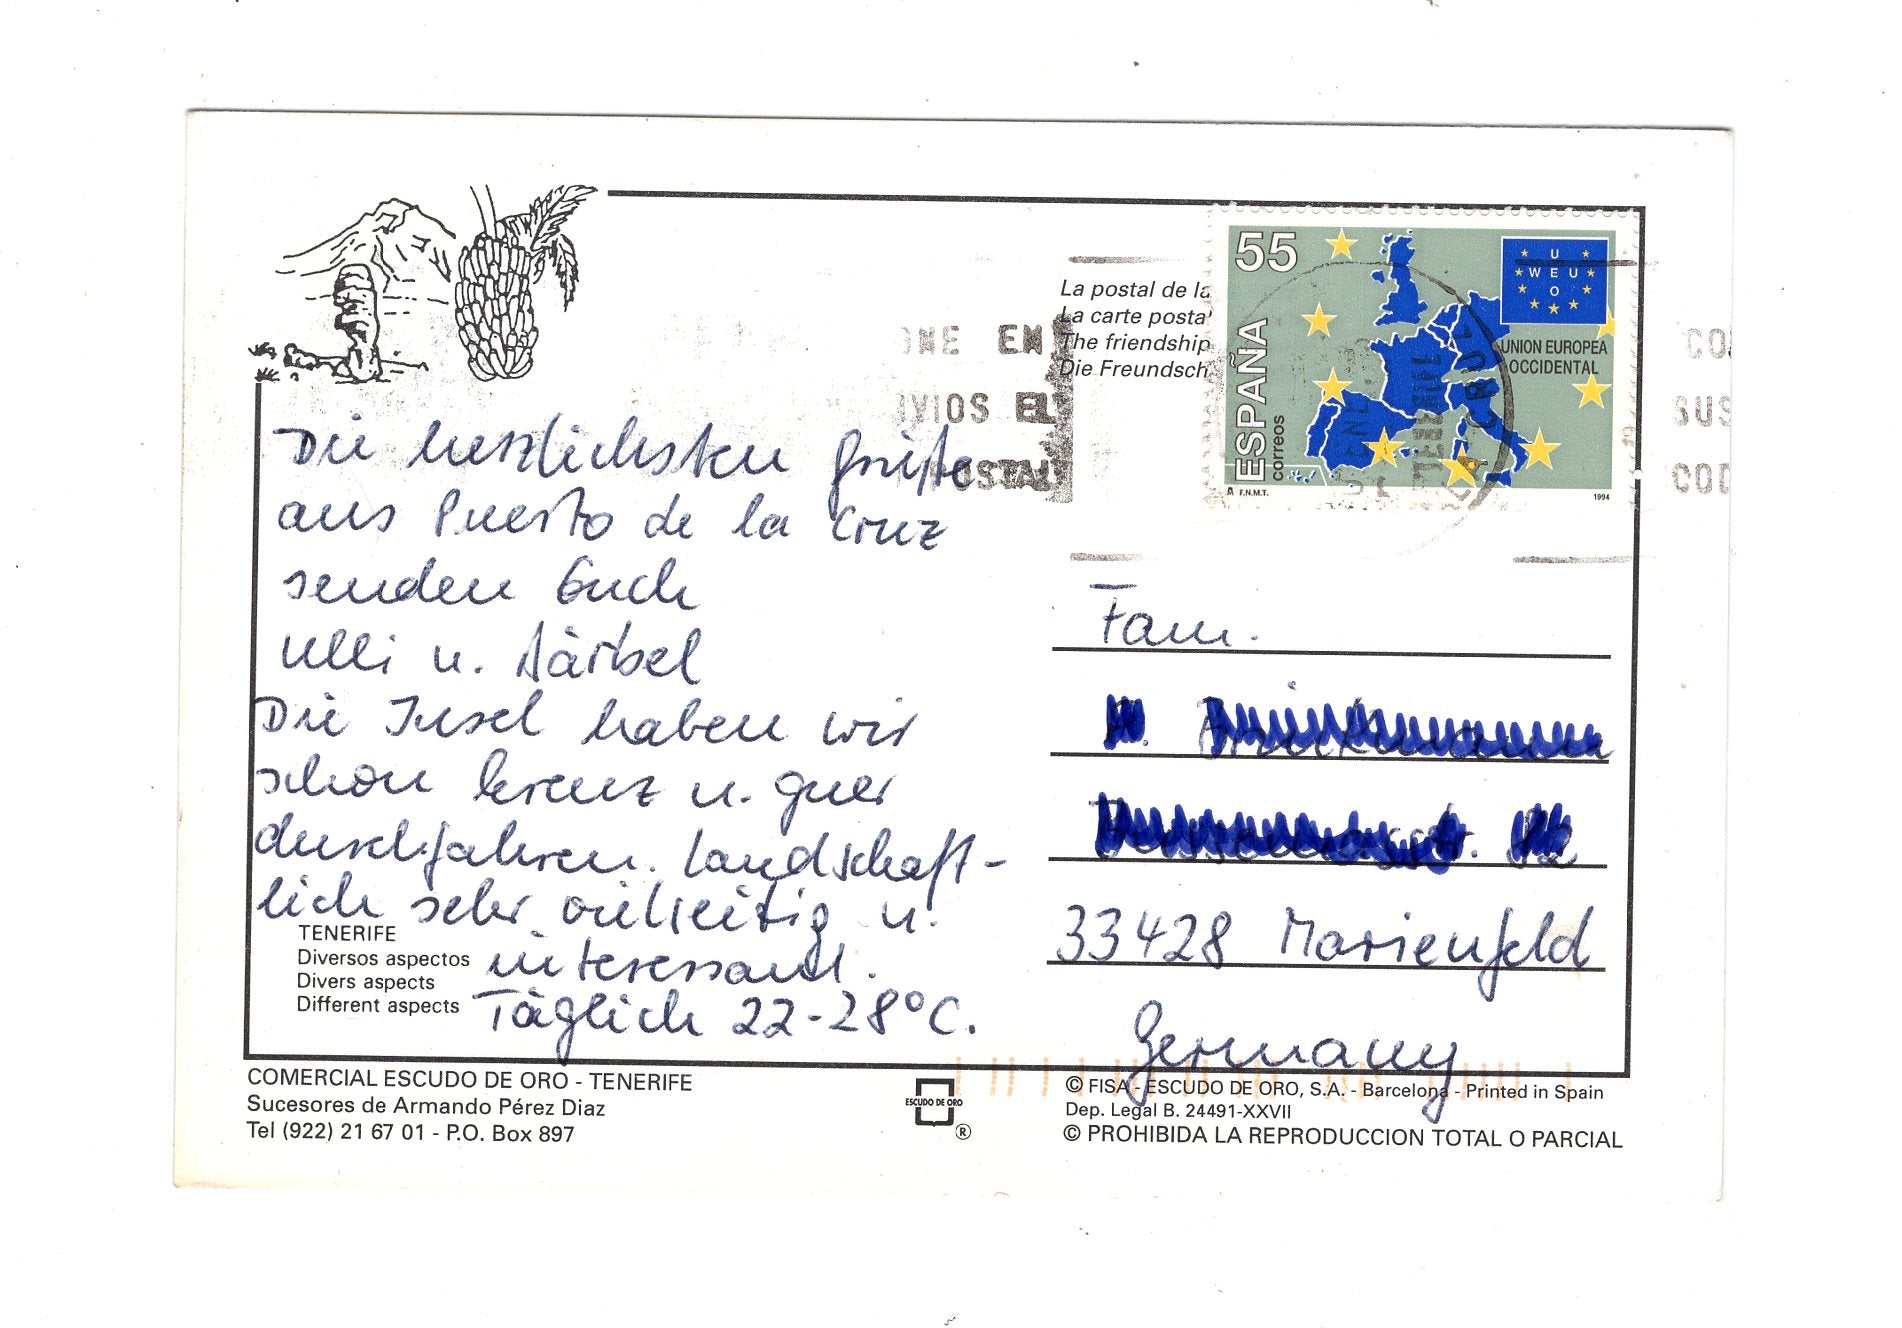 La postal de la
La carte posta
The friendship
Die Freundsch
55
ESPAÑA
correos
U
WEU
O
UNION EUROPEA
OCCIDENTAL
A F.N.M.T.
1994
EN
EL
POSTAL
CO
SUS
COD
Die herzlichsten Grüße
aus Puerto de la Cruz
senden Euch
Ulli u. Bärbel
Die Insel haben wir
schon kreuz u. quer
durchfahren. Landschaft-
lich sehr vielseitig u.
interessant.
Täglich 22-28°C.
TENERIFE
Diversos aspectos
Divers aspects
Different aspects
Fam.
33428 Marienfeld
Germany
COMERCIAL ESCUDO DE ORO - TENERIFE
Sucesores de Armando Pérez Diaz
Tel (922) 21 67 01 - P.O. Box 897
ESCUDO DE ORO
®
© FISA - ESCUDO DE ORO, S.A. - Barcelona - Printed in Spain
Dep. Legal B. 24491-XXVII
© PROHIBIDA LA REPRODUCCION TOTAL O PARCIAL